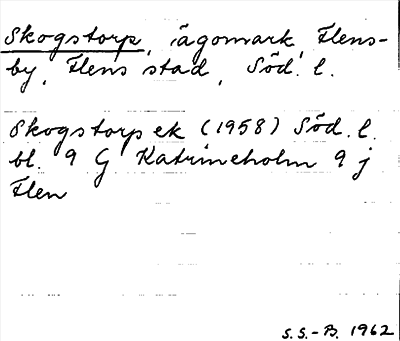 Skogstorp, ägomark, Flens-
by, Flens stad, Söd. l.
Skogstorp ek (1958) Söd. l.
bl. 9 G Katrineholm 9 j
Flen
S.S.-B. 1962